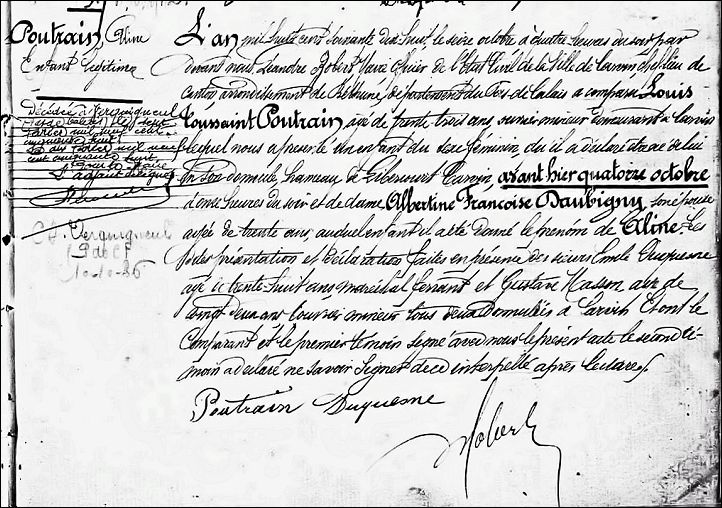 Poutrain, Aline
Enfant légitime
Décédée à Verquigneul
(Pas de Calais) le sept
L'adjoint délégué
Verquigneul
P de C
10-10-86
L'an mil huit cent soixante dix huit, le seize octobre à quatre heures du soir par
devant nous, Léandre Robert Maire officier de l'Etat Civil de la Ville de Carvin chef lieu de
canton arrondissement de Béthune, département du Pas de Calais a comparu Louis
Toussaint Poutrain âgé de trente trois ans ouvrier mineur demeurant à Carvin
lequel nous a présenté un enfant du sexe féminin, qu'il a déclaré être né de lui
en son domicile hameau de Libercourt Carvin, avant hier quatorze octobre
à onze heures du soir et de dame Albertine Françoise Daubigny son épouse
âgée de trente ans, auquel enfant il a été donné le prénom de Aline. Les
dites présentation et déclaration faites en présence des sieurs Emile Duquesne
âgé de trente huit ans maréchal ferrant et Gustave Masson âgé de
vingt deux ans ouvrier mineur tous deux domiciliés à Carvin Et ont le
Comparant et le premier témoin signé avec nous le présent acte le second té-
moin a déclaré ne savoir signer de ce interpellé après lecture.
Poutrain Duquesne
Robert